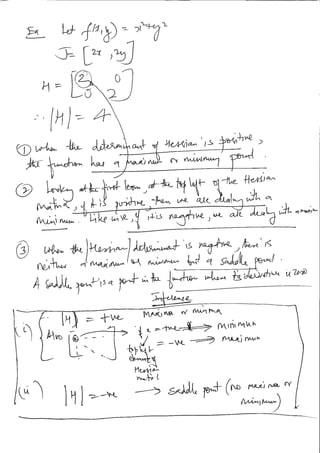 Ex Let f(x,y) = x²+y²
J = [2x , 2y]
H = [2 0
0 2]
∴ |H| = 4
① When the determinant of Hessian is positive,
the function has a maximum or minimum point.
② Looking at the first term, at the top left of the Hessian
matrix, if it is positive then we are dealing with a
minimum. Likewise, if it is negative, we are dealing with a maxima
③ When the |Hessian| determinant is negative, there is
neither a maximum or minimum but a saddle point.
A saddle point is a point in the function where its derivative is zero
Inference
(i) |H| = +ve Maxima or minima
Also if a = +ve → minimum
= -ve → maximum
top left
corner of
Hessian
matrix
(ii) |H| = -ve → saddle point (no maxima or
minimum)